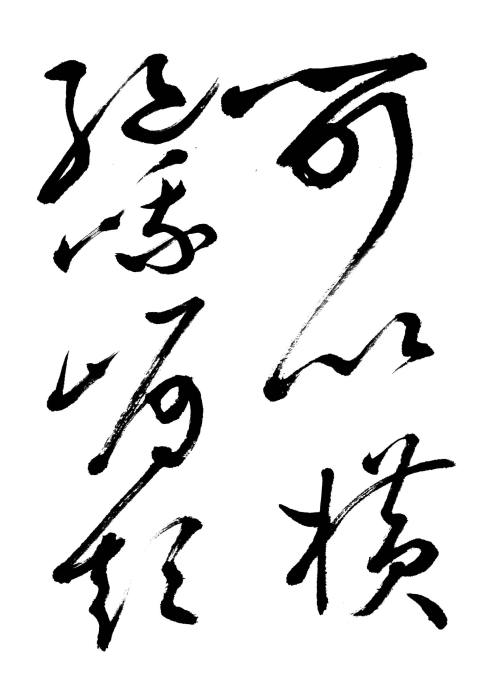 可以横
绝峨眉巅